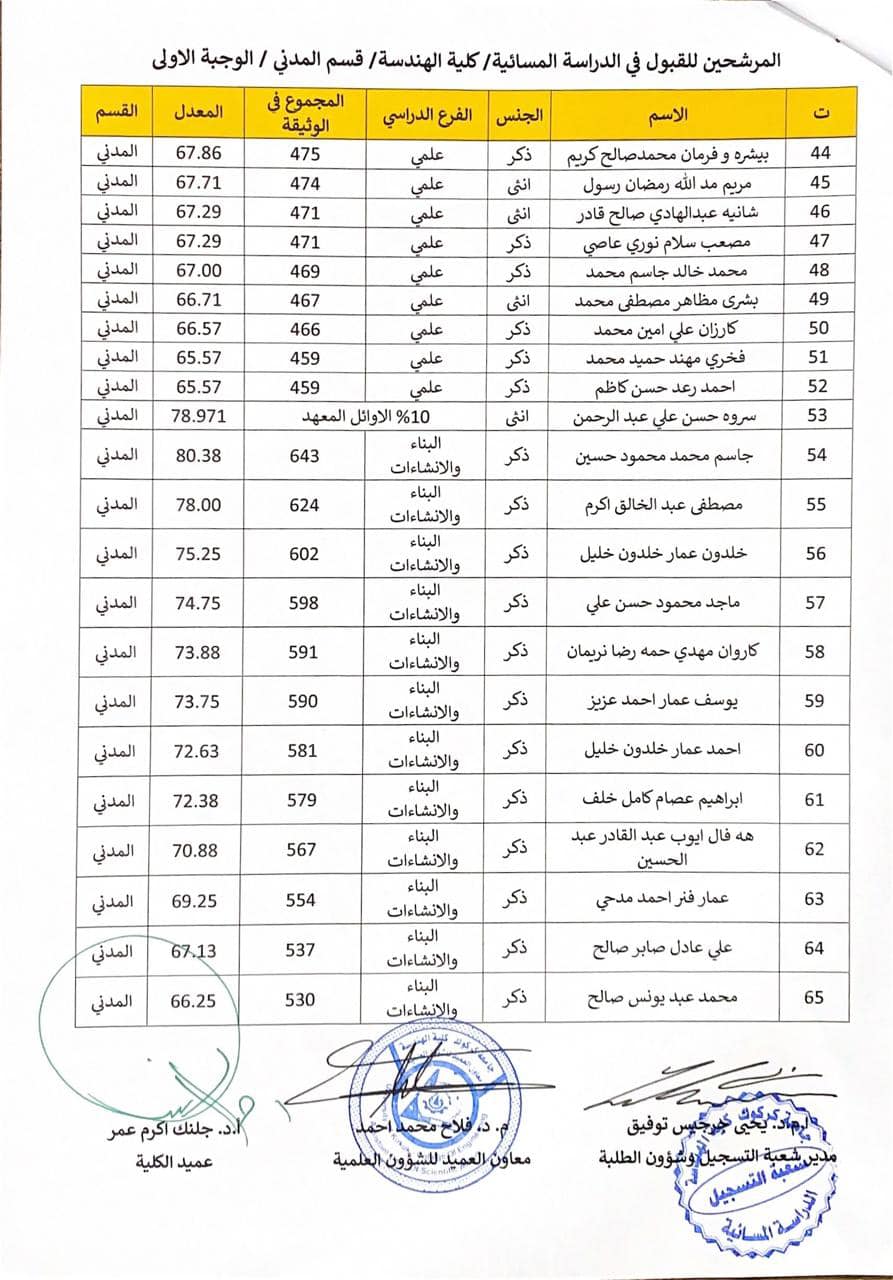 المرشحين للقبول في الدراسة المسائية/ كلية الهندسة/ قسم المدني / الوجبة الاولى
ت الاسم الجنس الفرع الدراسي المجموع في الوثيقة المعدل القسم
44 بيشره و فرمان محمدصالح كريم ذكر علمي 475 67.86 المدني
45 مريم مد الله رمضان رسول انثى علمي 474 67.71 المدني
46 شانيه عبدالهادي صالح قادر انثى علمي 471 67.29 المدني
47 مصعب سلام نوري عاصي ذكر علمي 471 67.29 المدني
48 محمد خالد جاسم محمد ذكر علمي 469 67.00 المدني
49 بشرى مظاهر مصطفى محمد انثى علمي 467 66.71 المدني
50 كارزان علي امين محمد ذكر علمي 466 66.57 المدني
51 فخري مهند حميد محمد ذكر علمي 459 65.57 المدني
52 احمد رعد حسن كاظم ذكر علمي 459 65.57 المدني
53 سروه حسن علي عبد الرحمن انثى 10% الاوائل المعهد 78.971 المدني
54 جاسم محمد محمود حسين ذكر البناء والانشاءات 643 80.38 المدني
55 مصطفى عبد الخالق اكرم ذكر البناء والانشاءات 624 78.00 المدني
56 خلدون عمار خلدون خليل ذكر البناء والانشاءات 602 75.25 المدني
57 ماجد محمود حسن علي ذكر البناء والانشاءات 598 74.75 المدني
58 كاروان مهدي حمه رضا نريمان ذكر البناء والانشاءات 591 73.88 المدني
59 يوسف عمار احمد عزيز ذكر البناء والانشاءات 590 73.75 المدني
60 احمد عمار خلدون خليل ذكر البناء والانشاءات 581 72.63 المدني
61 ابراهيم عصام كامل خلف ذكر البناء والانشاءات 579 72.38 المدني
62 هه فال ايوب عبد القادر عبد الحسين ذكر البناء والانشاءات 567 70.88 المدني
63 عمار فنر احمد مدحي ذكر البناء والانشاءات 554 69.25 المدني
64 علي عادل صابر صالح ذكر البناء والانشاءات 537 67.13 المدني
65 محمد عبد يونس صالح ذكر البناء والانشاءات 530 66.25 المدني
ا.م.د. يحيى جرجيس توفيق
مدير شعبة التسجيل وشؤون الطلبة
م. د. فلاح محمد احمد
معاون العميد للشؤون العلمية
ا.د. جلنك اكرم عمر
عميد الكلية
جامعة كركوك كلية الهندسة
شعبة التسجيل
الدراسة المسائية
جامعة كركوك كلية الهندسة